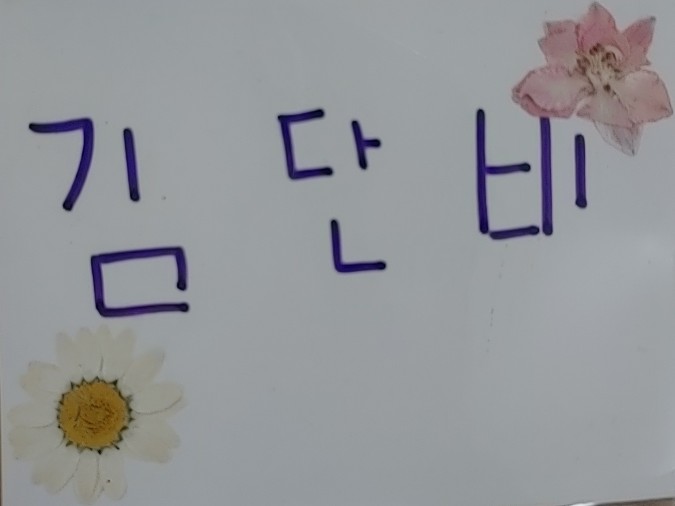 김단비